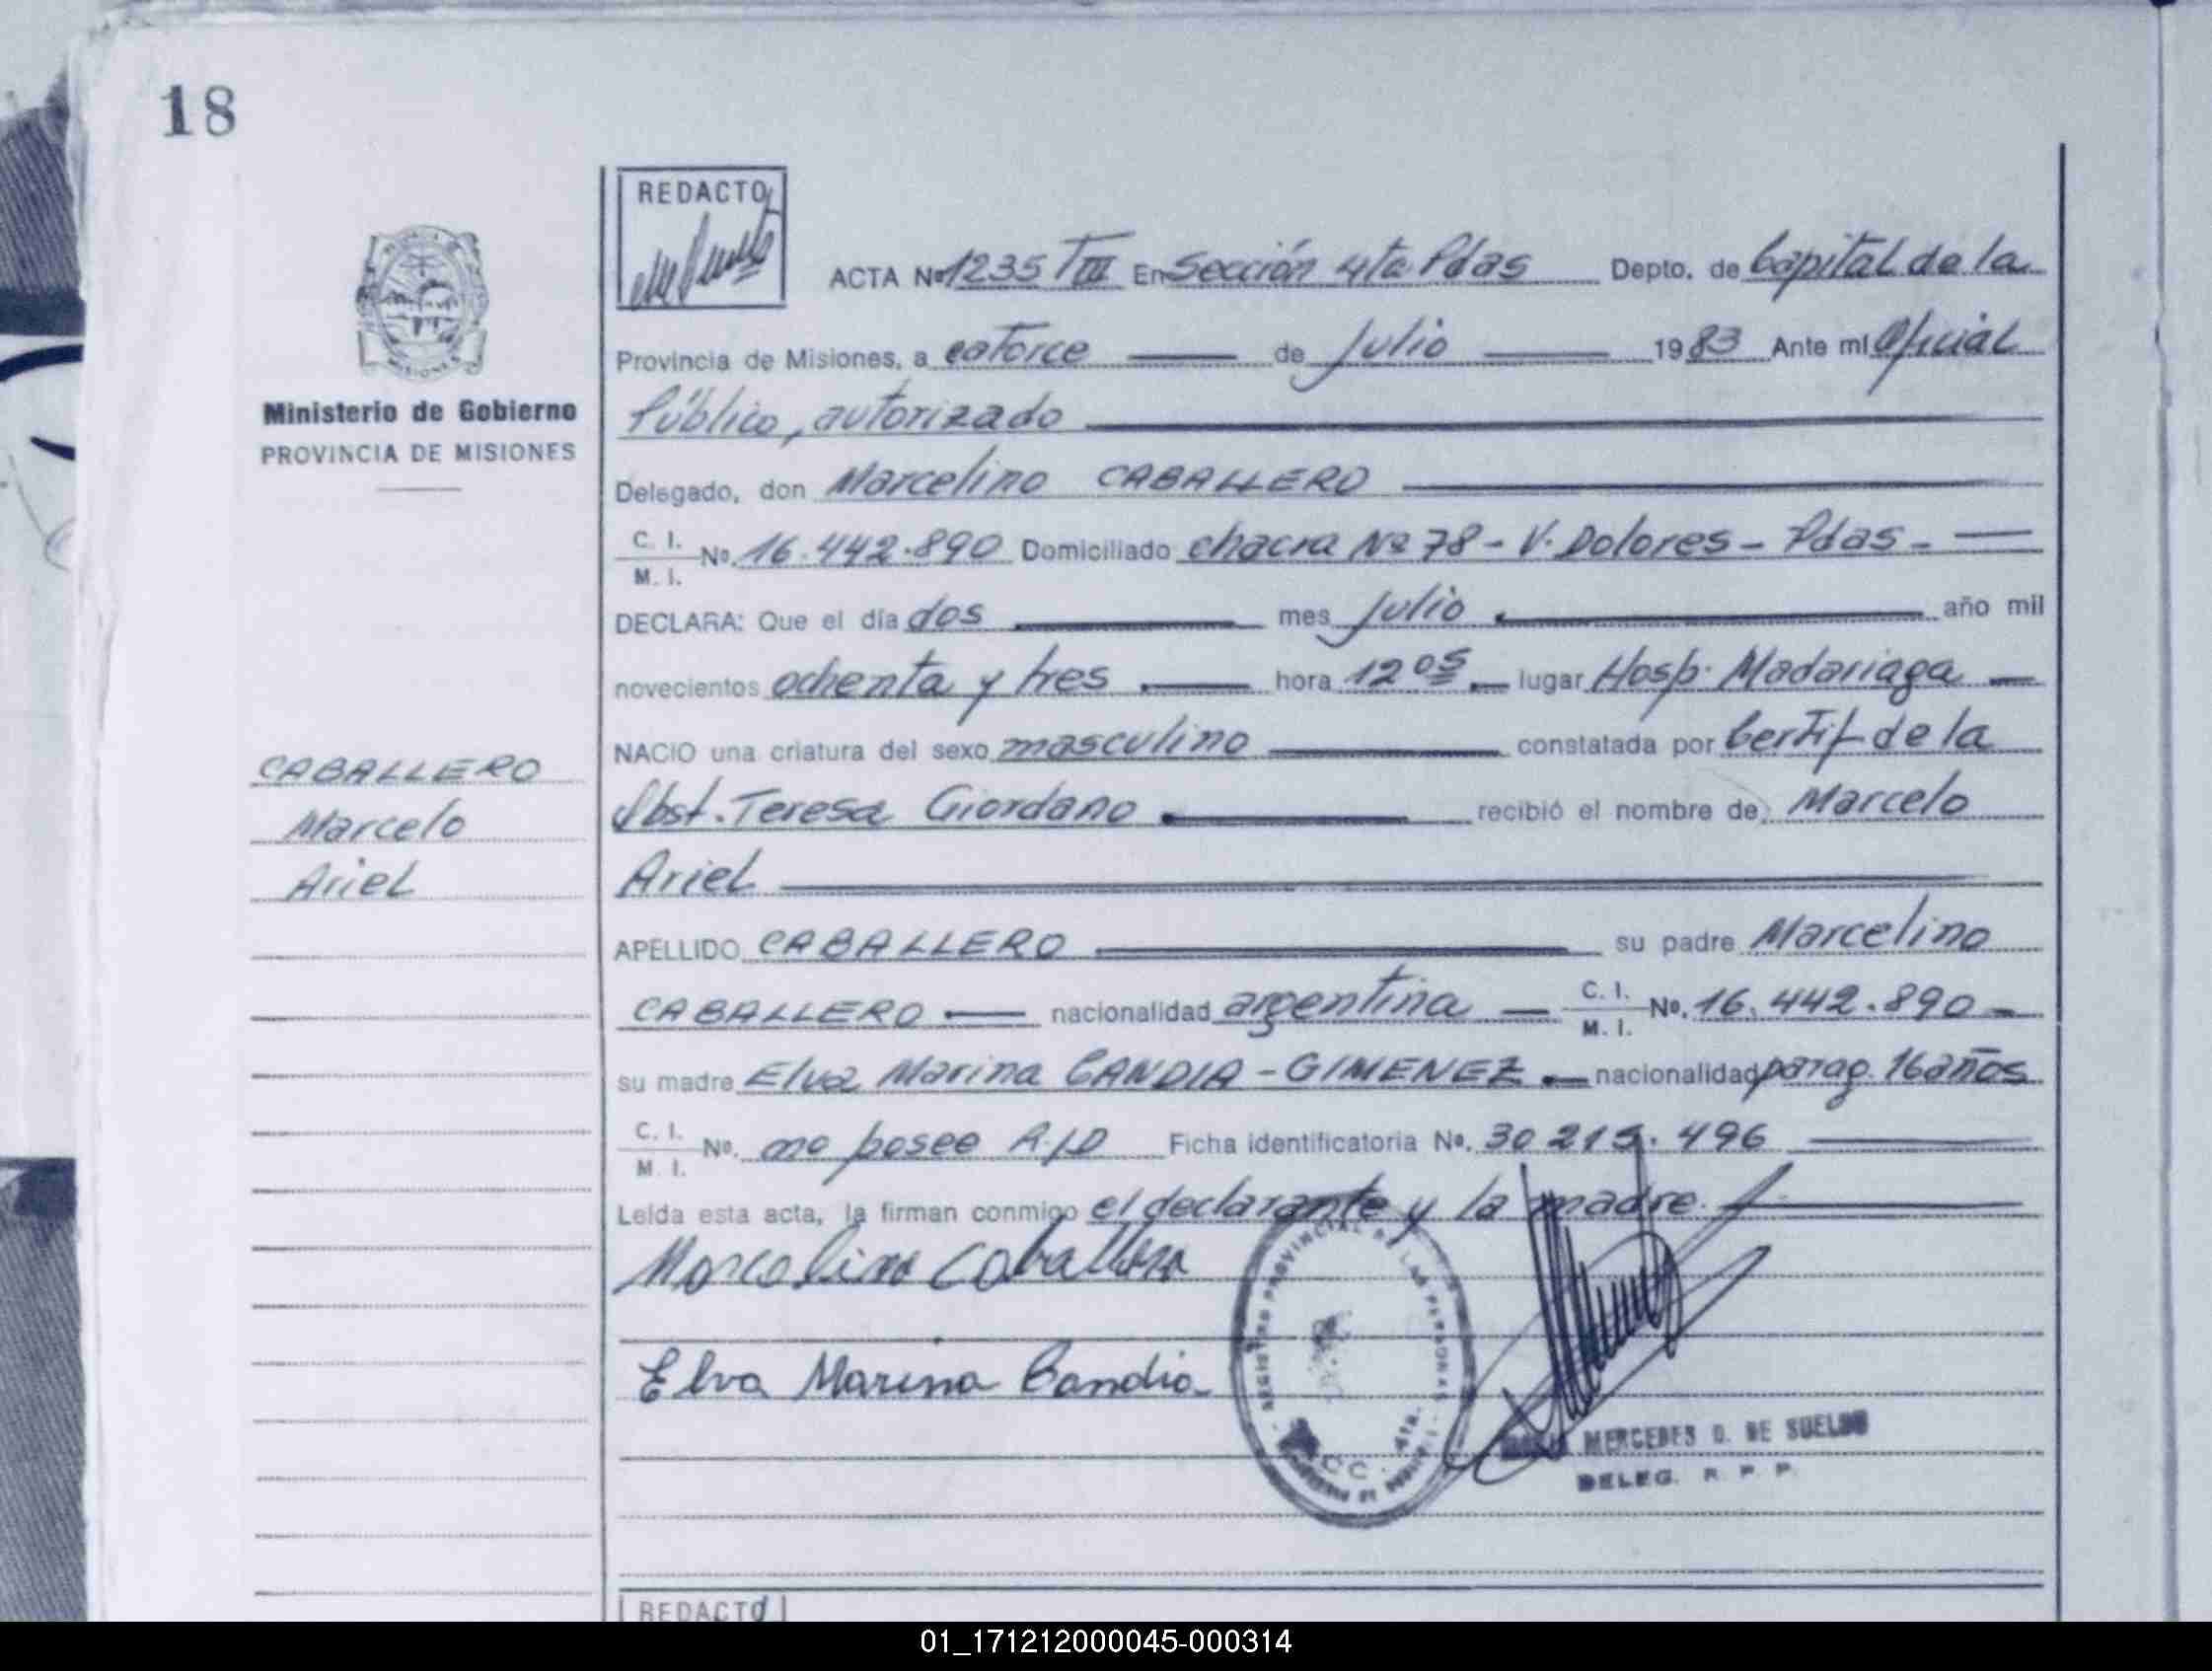 18
REDACTO
ACTA Nº 1235 TIII En Sección 4ta Pdas Depto. de Capital de la
Provincia de Misiones, a catorce de Julio 1983 Ante mi Oficial
Público, autorizado
Ministerio de Gobierno
PROVINCIA DE MISIONES
Delegado, don Marcelino CABALLERO
C. I.
M. I. Nº. 16.442.890 Domiciliado chacra Nº 78 - V. Dolores - Pdas -
DECLARA: Que el día dos mes Julio año mil
novecientos ochenta y tres hora 12 05 lugar Hosp. Madariaga
NACIO una criatura del sexo masculino constatada por Certif de la
CABALLERO
Marcelo
Ariel
Obst. Teresa Giordano recibió el nombre de Marcelo
Ariel
APELLIDO CABALLERO su padre Marcelino
CABALLERO nacionalidad argentina C. I.
M. I. Nº. 16.442.890
su madre Elva Marina CANDIA - GIMENEZ nacionalidad parag. 16 años
C. I.
M. I. Nº. no posee Ficha identificatoria Nº. 30 215.496
Leída esta acta, la firman conmigo el declarante y la madre.
Marcelino Caballero
Elva Marina Candia
REGISTRO PROVINCIAL DE LAS PERSONAS
4ta.
MERCEDES D. DE SUELDO
DELEG. R. P. P.
REDACTO
01_171212000045-000314